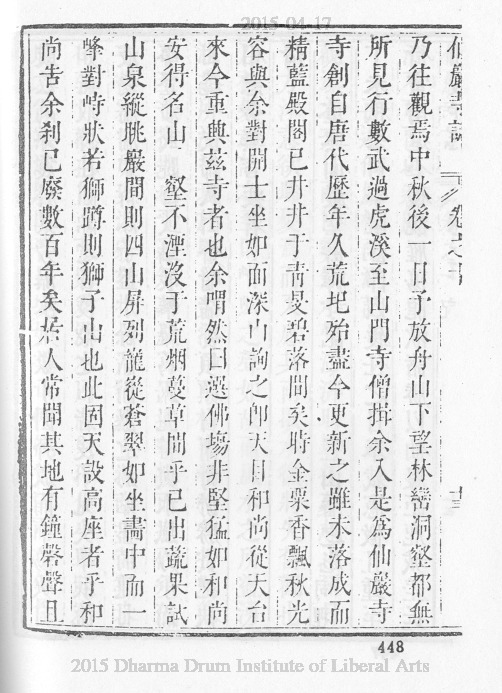 2015-04-17
仙巖寺誌 卷之 十三
乃往觀焉中秋後一日予放舟山下望林巒洞壑都無
所見行數武過虎溪至山門寺僧揖余入是為仙巖寺
寺創自唐代歷年久荒圮殆盡今更新之雖未落成而
精藍殿閣已井井于青旻碧落間矣時金粟香飄秋光
容與余對開士坐如面深山詢之即天目和尚從天台
來今重興茲寺者也余喟然曰選佛場非堅猛如和尚
安得名山 壑不湮沒于荒烟蔓草間乎已出蔬果試
山泉縱眺巖間則四山屏列龍從蒼翠如坐畫中而一
峰對峙狀若獅蹲則獅子山也此固天設高座者乎和
尚告余剎已廢數百年矣居人常聞其地有鐘磬聲且
448
2015 Dharma Drum Institute of Liberal Arts